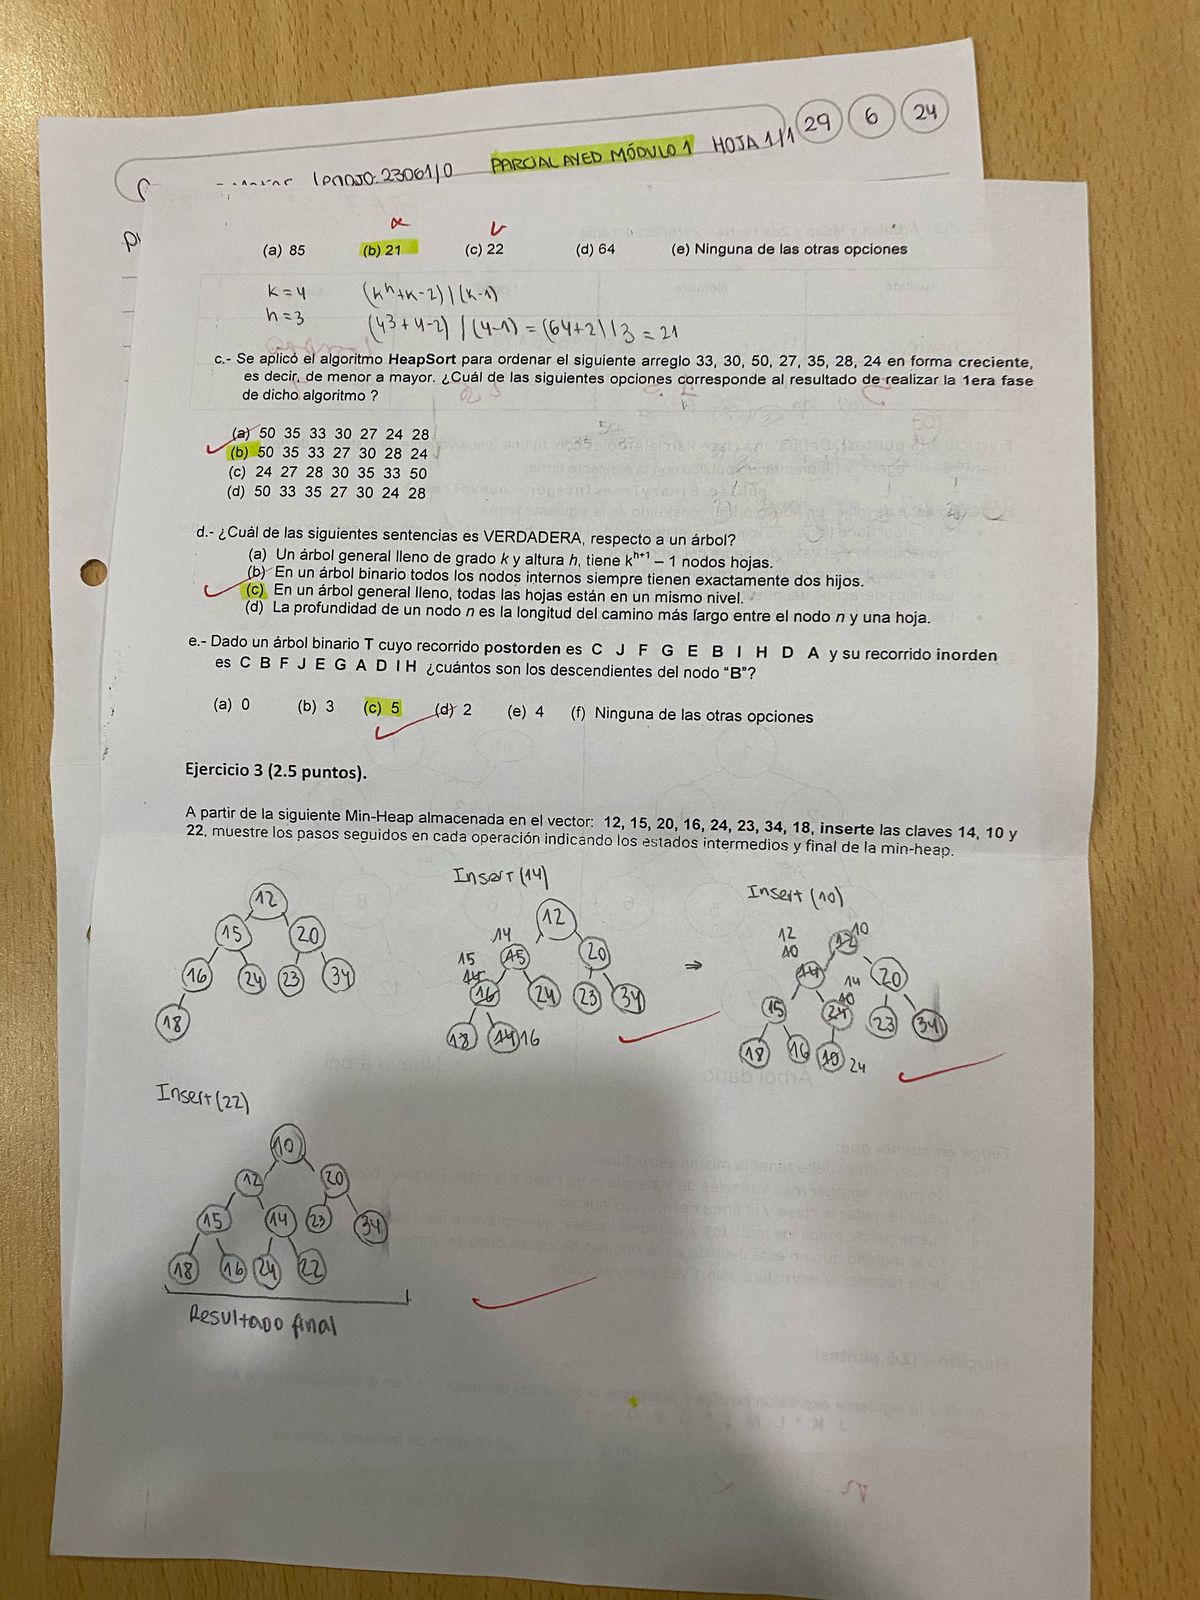 29 6 24
PARCIAL AYED MÓDULO 1 HOJA 1/1
LEGAJO: 23061/0
(a) 85 (b) 21 (c) 22 (d) 64 (e) Ninguna de las otras opciones
K=4 (k^h+k-2)/(k-1)
h=3 (4^3+4-2)/(4-1) = (64+2)/3 = 21
c.- Se aplicó el algoritmo HeapSort para ordenar el siguiente arreglo 33, 30, 50, 27, 35, 28, 24 en forma creciente,
es decir, de menor a mayor. ¿Cuál de las siguientes opciones corresponde al resultado de realizar la 1era fase
de dicho algoritmo ?
(a) 50 35 33 30 27 24 28
(b) 50 35 33 27 30 28 24
(c) 24 27 28 30 35 33 50
(d) 50 33 35 27 30 24 28
d.- ¿Cuál de las siguientes sentencias es VERDADERA, respecto a un árbol?
(a) Un árbol general lleno de grado k y altura h, tiene k^h+1 – 1 nodos hojas.
(b) En un árbol binario todos los nodos internos siempre tienen exactamente dos hijos.
(c) En un árbol general lleno, todas las hojas están en un mismo nivel.
(d) La profundidad de un nodo n es la longitud del camino más largo entre el nodo n y una hoja.
e.- Dado un árbol binario T cuyo recorrido postorden es C J F G E B I H D A y su recorrido inorden
es C B F J E G A D I H ¿cuántos son los descendientes del nodo “B”?
(a) 0 (b) 3 (c) 5 (d) 2 (e) 4 (f) Ninguna de las otras opciones
Ejercicio 3 (2.5 puntos).
A partir de la siguiente Min-Heap almacenada en el vector: 12, 15, 20, 16, 24, 23, 34, 18, inserte las claves 14, 10 y
22, muestre los pasos seguidos en cada operación indicando los estados intermedios y final de la min-heap.
12
15 20
16 24 23 34
18
Insert(14)
12
14 15 20
15 14 16 24 23 34
18 14 16
⇒
Insert(10)
12 10
12 10 14 20
15 14 10 24 23 34
18 16 10 24
Insert(22)
10
12 20
15 14 23 34
18 16 24 22
Resultado final